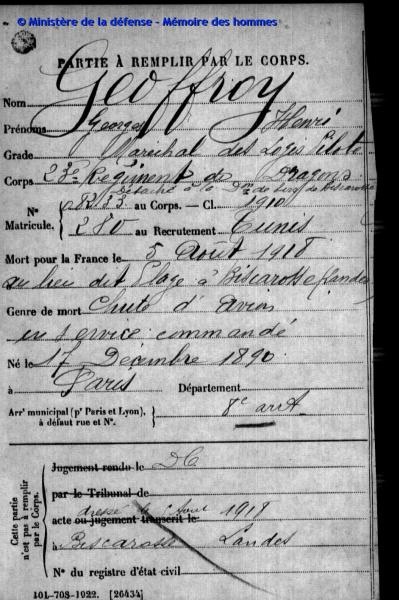 © Ministère de la défense - Mémoire des hommes
PARTIE À REMPLIR PAR LE CORPS.
Nom Geoffroy
Prénoms Georges Henri
Grade Maréchal des Loges Pilote
Corps 23e Régiment de Dragons
Détaché à la de de Biscarosse
N° Matricule. au Corps. — Cl. 1910
280 au Recrutement Tunis
Mort pour la France le 5 Août 1918
au lieu dit Plage à Biscarosse (Landes)
Genre de mort Chute d'avion
en service commandé
Né le 17 Décembre 1890
à Paris Département
Arrt municipal (pr Paris et Lyon), à défaut rue et N°. 8e arrt
Cette partie n'est pas à remplir par le Corps.
Jugement rendu le DC
par le Tribunal de
acte ou jugement transcrit le dressé le Août 1918
à Biscarosse Landes
N° du registre d'état civil
101-708-1922. [26434]